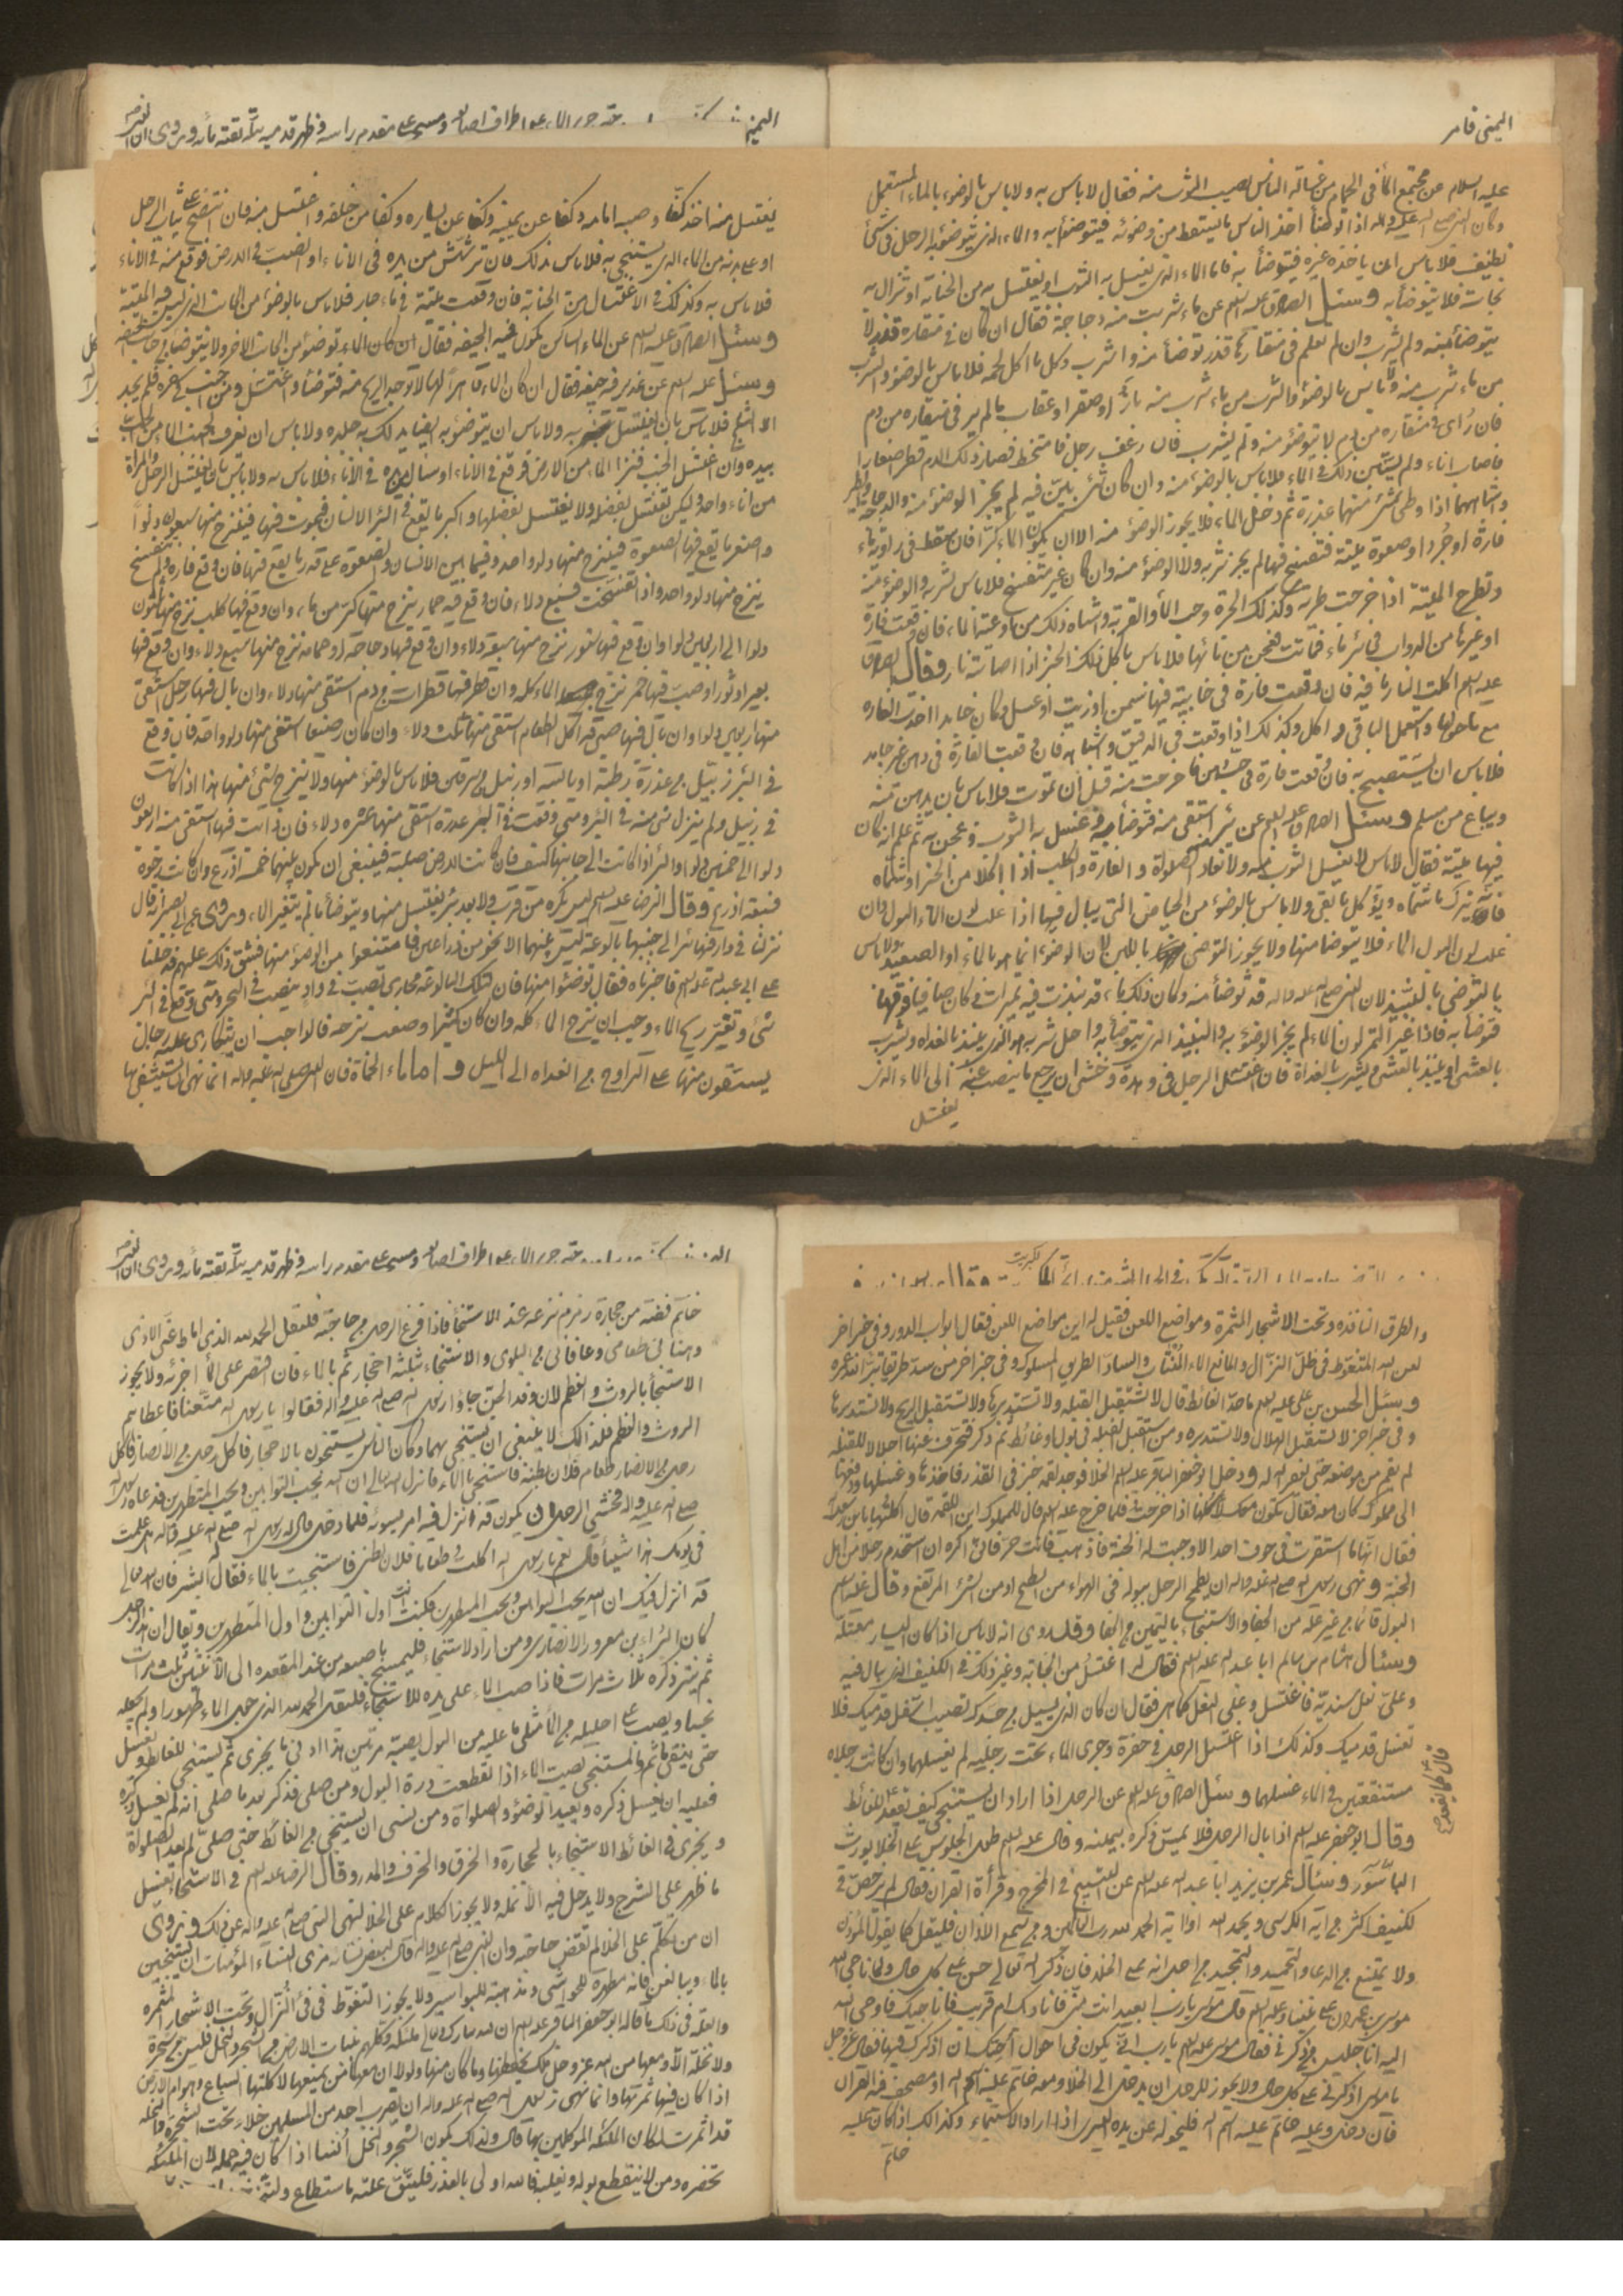 اليمنى فامر
عليه السلام عن مجتمع الماء في الحمام من غسالة الناس يصيب الثوب منه فقال لا باس به ولا باس بالوضوء بالماء المستعمل
وكان النبي صلى الله عليه واله اذا توضأ اخذ الناس ما يسقط من وضوئه فيتوضؤا به والماء الذي يتوضؤ به الرجل في شئ
نظيف فلا باس ان ياخذه غيره فيتوضأ به فاما الماء الذي يغسل به الثوب او يغتسل به من الجنابة او تزال به
نجاسة فلا يتوضأ به وسئل الصادق عليه السلم عن ماء شربت منه دجاجة فقال ان كان في منقارها قذر لا
يتوضأ منه ولم يشرب وان لم يعلم في منقارها قذر توضأ منه واشرب وكل ما اكل لحمه فلا باس بالوضوء والشرب
من ماء شرب منه ولا باس بالوضوء والشرب من ماء شرب منه باز او صقر او عقاب ما لم ير في منقاره دم
فان رأى في منقاره دم لا يتوضؤ منه ولم يشرب فان رعف رجل فامتخط فصار ذلك الدم قطرا صغارا
فاصاب اناء ولم يستبين ذلك في الماء فلا باس بالوضوء منه وان كان شئ بين فيه لم يجز الوضوء منه والدجاجة والطير
واشباههما اذا وطى شئ منها عذرة ثم دخل الماء فلا يجوز الوضوء منه الا ان يكون الماء كرا فان سقط في راوية ماء
فارة او جرذ او صعوة ميتة فتفسخ فيها لم يجز شربه ولا الوضوء منه وان كان غير متفسخ فلا باس بشربه والوضوء منه
وتطرح الميتة اذا خرجت طرية وكذلك الجرة وحب الماء والقربة واشباه ذلك من اوعية الماء فان وقعت فارة
او غيرها من الدواب في بئر ماء فماتت فعجن من مائها فلا باس باكل ذلك الخبز اذا اصابته نار وقال الصادق
عليه السلم اكلت النار ما فيه فان وقعت فارة في خابية فيها سمن او زيت او عسل وكان جامدا اخذت الفارة
مع ما حولها واستعمل الباقي واكل وكذلك اذا وقعت في الدقيق واشباهه فان وقعت الفارة في دهن غير جامد
فلا باس ان يستصبح به فان وقعت فارة في حب دهن فاخرجت منه قبل ان تموت فلا باس بان يدهن منه
ويباع من مسلم وسئل الصادق عليه السلم عن بئر استقى منه فتوضأ به وغسل به الثوب وعجن به ثم علم انه كان
فيها ميتة فقال لا باس لا يغسل الثوب منه ولا تعاد الصلوة والفارة والكلب اذا اكلا من الخبز او شماه
فانه يترك ما شماه ويؤكل ما بقي ولا باس بالوضوء من الحياض التي يبال فيها اذا غلب لون الماء البول وان
غلب لون البول الماء فلا يتوضأ منها ولا يجوز التوضى باللبن لان الوضوء انما هو بالماء او الصعيد ولا باس
بالتوضي بالنبيذ لان النبي صلى الله عليه واله قد توضأ منه وكان ذلك ماء قد نبذت فيه تميرات وكان صافيا فوقها
فتوضأ به فاذا غير التمر لون الماء لم يجز الوضوء به والنبيذ الذي يتوضأ به واحل شربه هو الذي ينبذ بالغداه ويشرب
بالعشي او ينبذ بالعشي ويشرب بالغداة فان اغتسل الرجل في وهدة وخشى ان يرجع ما ينصب عنه الى الماء الذي
يغتسل
اليمنى ومسح على مقدم راسه وظهر قدميه ببلة بقية مائه وروى ان النبي
يغتسل منه اخذ كفا وصبه امامه وكفا عن يمينه وكفا عن يساره وكفا من خلفه واغتسل منه فان انتضح على ثياب الرجل
او على بدنه من الماء الذي يستنجى به فلا باس بذلك فان ترشش من يده في الاناء او انصب في الارض فوقع منه في الاناء
فلا باس به وكذلك في الاغتسال من الجنابة فان وقعت ميتة في ماء جار فلا باس بالوضوء من الجانب الذي ليس فيه الميتة
وسئل الصادق عليه السلم عن الماء الساكن يكون فيه الجيفه فقال ان كان الماء توضؤ من الجانب الاخر ولا يتوضأ من جانب الجيفه
وسئل عليه السلم عن غدير فيه جيفة فقال ان كان الماء قاهرا لها لا توجد الريح منه فتوضأ واغتسل ومن اجنب في سفره فلم يجد
الا الثلج فلا باس بان يغتسل به ولا باس ان يتوضؤ به ايضا يدلك به جلده ولا باس ان يغرف الجنب الماء من الحب
بيده وان اغتسل الجنب فنزا الماء من الارض فوقع في الاناء او سال من بدنه في الاناء فلا باس به ولا باس بان يغتسل الرجل والمرأة
من اناء واحد ولكن تغتسل بفضله ولا يغتسل بفضلها واكبر ما يقع في البئر الانسان فيموت فيها فينزح منها سبعون دلوا
واصغر ما يقع فيها الصعوة فينزح منها دلو واحد وفيما بين الانسان والصعوة على قدر ما يقع فيها فان وقع فارة ولم تتفسخ
ينزح منها دلو واحد واذا تفسخت فسبع دلاء فان وقع فيها حمار ينزح منها كر من ماء وان وقع فيها كلب نزح منها ثلثون
دلوا الى اربعين دلوا وان وقع فيها سنور نزح منها سبعة دلاء وان وقع فيها دجاجة او حمامة نزح منها سبع دلاء وان وقع فيها
بعير او ثور او صب فيها خمر نزح الماء كله وان قطر فيها قطرات من دم استقى منها دلاء وان بال فيها رجل استقى
منها اربعين دلوا وان بال فيها صبي قد اكل الطعام استقى منها ثلث دلاء وان كان رضيعا استقى منها دلو واحد فان وقع
في البئر زبيل من عذرة رطبة او يابسة او زبيل من سرقين فلا باس بالوضوء منها ولا ينزح شئ منها هذا اذا كانت
في زبيل ولم ينزل شئ منه في البئر ومتى وقعت في البئر عذرة استقى منها عشره دلاء فان ذابت فيها استقى منه اربعون
دلوا الى خمسين دلوا والبئر اذا كانت الى جانبها كنيف فان كانت الارض صلبة فينبغي ان يكون بينهما خمسة اذرع وان كانت رخوة
فسبعة اذرع وقال الرضا عليه السلم ليس يكره من قرب ولا بعد بئر يغتسل منها ويتوضأ ما لم يتغير الماء وروى عن ابي بصير انه قال
نزلنا في دار فيها بئر الى جنبها بالوعة ليس بينهما الا نحو من ذراعين فامتنعوا من الوضوء منها فشق ذلك عليهم فدخلنا
على ابي عبد الله عليه السلم فاخبرناه فقال توضؤا منها فان لتلك البالوعة مجاري تصب في واد ينصب في البحر ومتى وقع في البئر
شئ وتغير ريح الماء وجب ان ينزح الماء كله وان كان كثيرا وصعب نزحه فالواجب ان يتكارى عليه اربعة رجال
يستقون منها على التراوح من الغداه الى الليل واما ماء الحمأة فان النبي صلى الله عليه واله انما نهى ان يستشفى بها
والطرق النافذه وتحت الاشجار المثمرة ومواضع اللعن فقيل له اين مواضع اللعن فقال ابواب الدور وفي خبر اخر
لعن الله المتغوط في ظل النزال والمانع الماء المنتاب والساد الطريق المسلوك وفي خبر اخر من سد طريقا بتر الله عمره
وسئل الحسن بن علي عليه السلم ما حد الغائط قال لا تستقبل القبلة ولا تستدبرها ولا تستقبل الريح ولا تستدبرها
وفي خبر اخر لا تستقبل الهلال ولا تستدبره ومن استقبل القبلة في بول او غائط ثم ذكر فتحرف عنها اجلالا للقبلة
لم يقم من موضعه حتى يغفر الله له ودخل ابو جعفر الباقر عليه السلم الخلا فوجد لقمة خبز في القذر فاخذها وغسلها ودفعها
الى مملوك كان معه فقال تكون معك لاكلها اذا خرجت فلما خرج عليه السلم قال للمملوك اين اللقمه قال اكلتها يا بن رسول الله
فقال انها ما استقرت في جوف احد الا وجبت له الجنة فاذهب فانت حر فاني اكره ان استخدم رجلا من اهل
الجنة ونهى رسول الله صلى الله عليه واله ان يطمح الرجل ببوله في الهواء من السطح او من الشئ المرتفع وقال عليه السلم
البول قائما من غير علة من الجفا والاستنجاء باليمين من الجفا وقد روى انه لا باس اذا كان اليسار معتلة
وسئل هشام بن سالم ابا عبد الله عليه السلم فقال له اغتسل من الجنابة وغير ذلك في الكنيف الذي يبال فيه
وعلي نعل سندية فاغتسل وعلي النعل كما هي فقال ان كان الذي يسيل من جسدك تصيب اسفل قدميك فلا
تغسل قدميك وكذلك اذا اغتسل الرجل في حفرة وجرى الماء تحت رجليه لم يغسلهما وان كانت رجلاه
مستنقعتين في الماء غسلهما وسئل الصادق عليه السلم عن الرجل اذا اراد ان يستنجى كيف يقعد للغائط
وقال ابو جعفر عليه السلم اذا بال الرجل فلا يمس ذكره بيمينه وقال عليه السلم طول الجلوس على الخلا يورث
الباسور وسئل عمر بن يزيد ابا عبد الله عليه السلم عن التسبيح في المخرج وقرأة القران فقال لم يرخص في
الكنيف اكثر من اية الكرسي ويحمد الله او اية الحمد لله رب العالمين ومن سمع الاذان فليقل كما يقول المؤذن
ولا يمتنع من الدعا والتحميد والتمجيد من اجل انه على الخلا فان ذكر الله تعالى حسن على كل حال ولما ناجى الله
موسى بن عمران على نبينا وعليه السلم قال موسى يا رب ابعيد انت مني فاناديك ام قريب فاناجيك فاوحى الله
اليه انا جليس من ذكرني فقال موسى عليه السلم يا رب اني يكون في احوال اجلك ان اذكرك فيها فقال عز وجل
يا موسى اذكرني على كل حال ولا يجوز للرجل ان يدخل الى الخلا ومعه خاتم عليه اسم الله او مصحف فيه القران
فان دخل وعليه خاتم عليه اسم الله فليحوله عن يده اليسرى اذا اراد الاستنجاء وكذلك اذا كان عليه
خاتم
ومسح على مقدم راسه وظهر قدميه ببلة بقية مائه وروى ان النبي
خاتم فضة من حجارة زمزم نزعه عند الاستنجأ فاذا فرغ الرجل من حاجته فليقل الحمد لله الذي اماط عني الاذى
وهناني طعامي وعافاني من البلوى والاستنجاء بثلثة احجار ثم بالماء فان اقتصر على الماء اجزئه ولا يجوز
الاستنجأ بالروث والعظم لان وفد الجن جاؤا الى رسول الله صلى الله عليه واله فقالوا يا رسول الله متعنا فاعطاهم
الروث والعظم فلذالك لا ينبغي ان يستنجى بهما وكان الناس يستنجون بالاحجار فاكل رجل من الانصار فاكل
رجل من الانصار طعام فلان بطنه فاستنجى بالماء فانزل الله تعالى ان الله يحب التوابين ويحب المتطهرين فدعاه رسول الله
صلى الله عليه واله فخشي الرجل ان يكون قد انزل فيه امر يسوئه فلما دخل قال له رسول الله صلى الله عليه واله هل عملت
في يومك هذا شيئا قال نعم يا رسول الله اكلت طعاما فلان بطني فاستنجيت بالماء فقال له ابشر فان الله تعالى
قد انزل فيك ان الله يحب التوابين ويحب المتطهرين فكنت انت اول التوابين واول المتطهرين ويقال ان هذا الرجل
كان البراء بن معرور الانصاري ومن اراد لاستنجاء فليمسح باصبعه من عند المقعده الى الانثيين ثلث مرات
ثم ينتر ذكره ثلاث مرات فاذا صب الماء على يده للاستنجاء فليقل الحمد لله الذي جعل الماء طهورا ولم يجعله
نجسا ويصب على احليله من الماء مثلى ما عليه من البول يصبه مرتين هذا ادنى ما يجزى ثم يستنجى للغائط ويغسل
حتى ينقي ما ثم والمستنجى يصب الماء اذا انقطعت درة البول ومن صلى فذكر بعد ما صلى انه لم يغسل ذكره
فعليه ان يغسل ذكره ويعيد الوضوء والصلواة ومن نسى ان يستنجى من الغائط حتى صلى لم يعد الصلواة
ويجزى في الغائط الاستنجاء بالحجارة والخرق والخزف والمدر وقال الرضا عليه السلم في الاستنجأ يغسل
ما ظهر على الشرج ولا يدخل فيه الانملة ولا يجوز الكلام على الخلا لنهى النبي صلى الله عليه واله عن ذلك وروى
ان من تكلم على الخلا لم تقض حاجته وان النبي صلى الله عليه واله قال لبعض نسائه مرى النساء المؤمنات ان يستنجين
بالماء ويبالغن فانه مطهرة للحواشي ومذهبة للبواسير ولا يجوز التغوط في فئ النزال وتحت الاشجار المثمره
والعلة في ذلك ما قاله ابو جعفر الباقر عليه السلم ان لله تبارك وتعالى ملئكة وكلهم بنبات الارض من الشجر والنخل فليس من شجرة
ولا نخلة الا ومعها من الله عز وجل ملك يحفظها وما كان منها ولولا ان معها من يمنعها لاكلتها السباع وهوام الارض
اذا كان فيها ثمرتها وانما نهى رسول الله صلى الله عليه واله ان يضرب احد من المسلمين خلاء تحت الشجرة والنخله
قد اثمرت لمكان الملئكه الموكلين بها قال ولذلك يكون الشجر والنخل انسا اذا كان فيه حمله لان الملئكه
تحضره ومن لا ينقطع بوله ويغلبه فالله اولى بالعذر فليتق علته ما استطاع